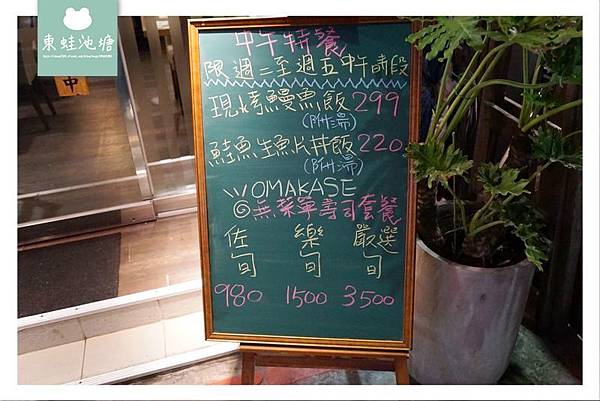 東蛙池塘
中午特餐
限週二至週五中午時段
現烤鰻魚飯299
(附湯)
鮭魚生魚片丼飯220
(附湯)
OMAKASE
無菜單壽司套餐
佐旬 樂旬 嚴選旬
980 1500 3500
中